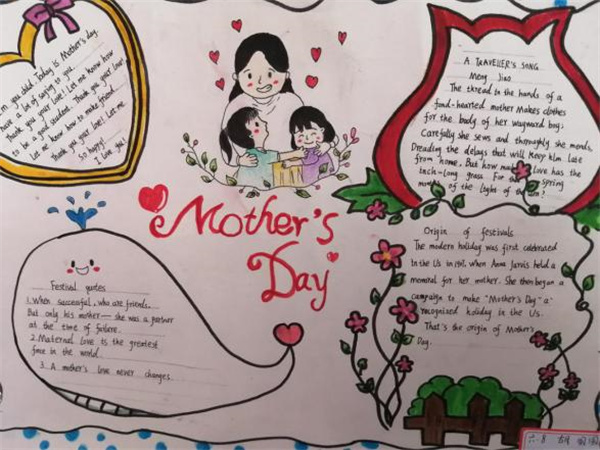 m your child. Today is Mother's day.
have a lot of saying to you.
Thank you your love! Let me know how
to be a good student. Thank you your love!
Let me know how to make friend.
Thank you your love! Let me
so happy!
I love you!
A TRAVELLER'S SONG
Meng Jiao
The thread in the hands of a
fond-hearted mother Makes clothes
for the body of her wayward boy;
Carefully she sews and thoroughly she mends,
Dreading the delays that will keep him late
from home. But how much love has the
inch-long grass For three spring
months of the light of the sun?
Mother's
Day
Festival quotes
1. When successful, who are friends.
But only his mother — she was a partner
at the time of failure.
2. Maternal love is the greatest
force in the world.
3. A mother's love never changes.
Origin of festivals
The modern holiday was first celebrated
in the Us in 1907, when Anna Jarvis held a
momorial for her mother. She then began a
campaign to make "Mother's Day" a
recognized holiday in the U.S.
That's the origin of Mother's
Day.
六.8